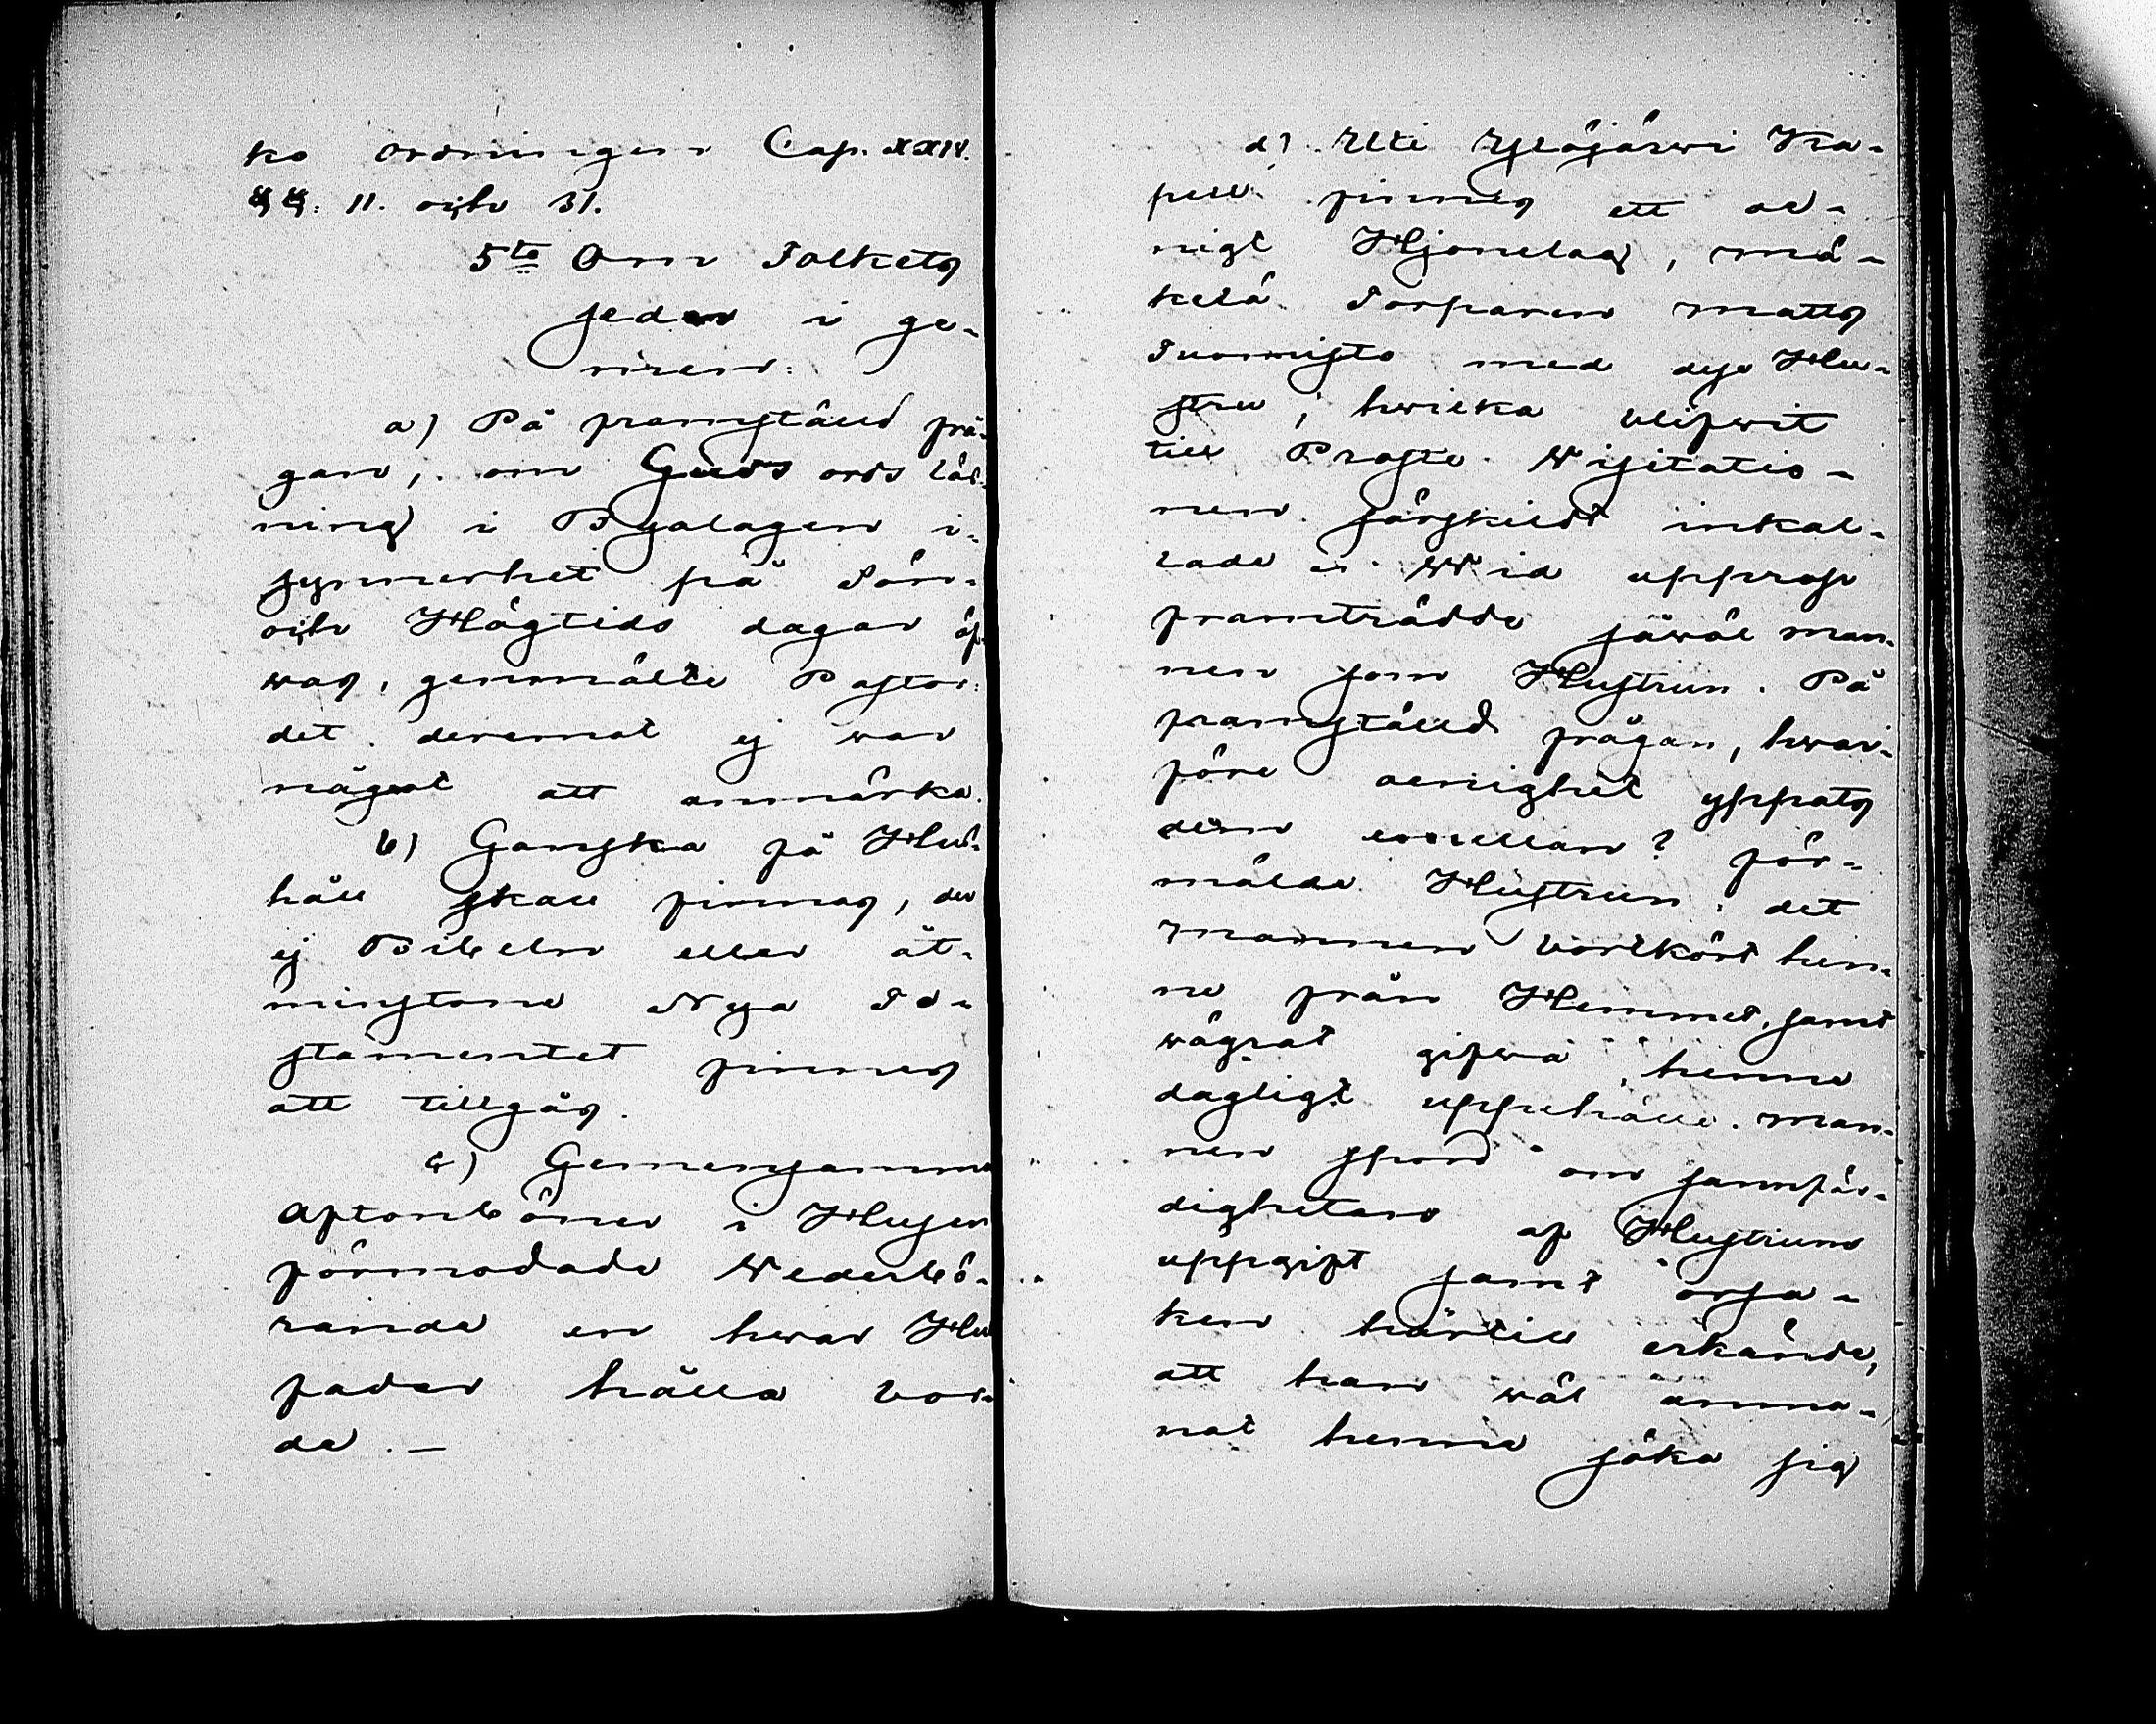 ko ordningen Cap. XXIV.
§§. 11. och 31.
5to Om Folkets
seder i ge-
niren:
a) På framstäld frå-
gan, om Guds ords läs-
ning i Byalagen i-
synnerhet på Sön-
och Högtids dagar öf-
was, genmälte Pastor:
det deremot ej war
något att anmärka.
b) Ganska få Hus-
håll skall finnas, der
ej Bibeln eller åt-
minstone Nya Te-
stamentet finnes
att tillgås.
c) Gemensamma
aftonböner i Husen
förmodade Wederbö-
rande en hwar Hus
fader hålla bor-
de. —
d) Uti Ylöjärwi Ka-
pell finnes ett oe-
nigt Hjonelag, Mä-
kelä Torparen Matts
Tuomisto med dess Hu-
stru, hwilka blifwit
till Prosts Wisitatio-
nen särskildt inkal-
lade. Wid upprop
framträdde såwäl man-
nen som Hustrun. På
framstäld frågan, hwar-
före oenighet yppats
dem emellan? för-
mälde Hustrun: det
mannen bortkört hen-
ne från Hemmet, samt
wägrat gifwa henne
dagligt uppehälle. Man-
nen spord om sannfär-
digheten af Hustruns
uppgift samt orsa-
ken härtill erkände,
att han wäl anma-
nat henne söka sig